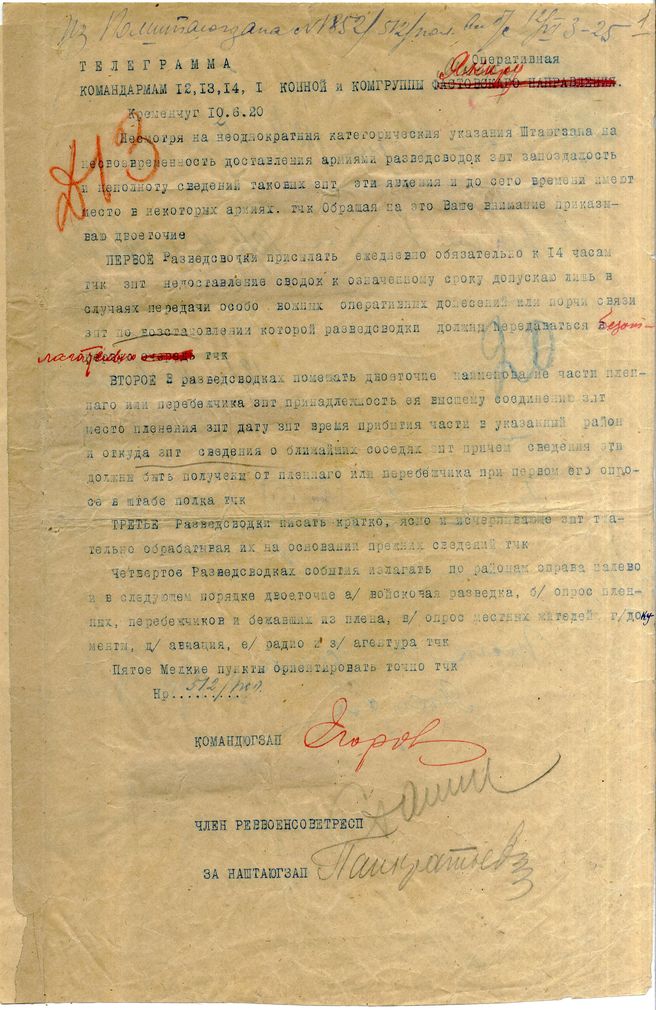 № 1852/512/пол. 3-25 1
ТЕЛЕГРАММА Оперативная
КОМАНДАРМАМ 12,13,14, I КОННОЙ И КОМГРУППЫ ФАСТОВСКАГО НАПРАВЛЕНИЯ.
Кременчуг 10.6.20
Несмотря на неоднократныя категорическия указания Штаюгзапа на
несвоевременность доставления армиями разведсводок зпт запоздалость
и неполноту сведений таковых зпт эти явления и до сего времени имеют
место в некоторых армиях. тчк Обращая на это Ваше внимание приказы-
ваю двоеточие
ПЕРВОЕ Разведсводки присылать ежедневно обязательно к 14 часам
тчк зпт недоставление сводок к означенному сроку допускаю лишь в
случаях передачи особо важных оперативных донесений или порчи связи
зпт по возстановлении которой разведсводки должны передаваться безот-
лагательно очередь тчк
ВТОРОЕ В разведсводках помещать двоеточие наименование части плен-
наго или перебежчика зпт принадлежность ея высшему соединению зпт
место пленения зпт дату зпт время прибытия части в указанный район
и откуда зпт сведения о ближайших соседях зпт причем сведения эти
должны быть получены от пленнаго или перебежчика при первом его опро-
се в штабе полка тчк
ТРЕТЬЕ Разведсводки писать кратко, ясно и исчерпывающе зпт тща-
тельно обрабатывая их на основании прежних сведений тчк
Четвертое Разведсводках события излагать по районам справа налево
и в следующем порядке двоеточие а/ войсковая разведка, б/ опрос плен-
ных, перебежчиков и бежавших из плена, в/ опрос местных жителей, г/доку
менты, д/ авиация, е/ радио и з/ агентура тчк
Пятое Мелкие пункты ориентировать точно тчк
Нр. 512/пол.
КОМАНДЮГЗАП Егоров
ЧЛЕН РЕВВОЕНСОВЕТРЕСП
ЗА НАШТАЮГЗАП Панкратьев